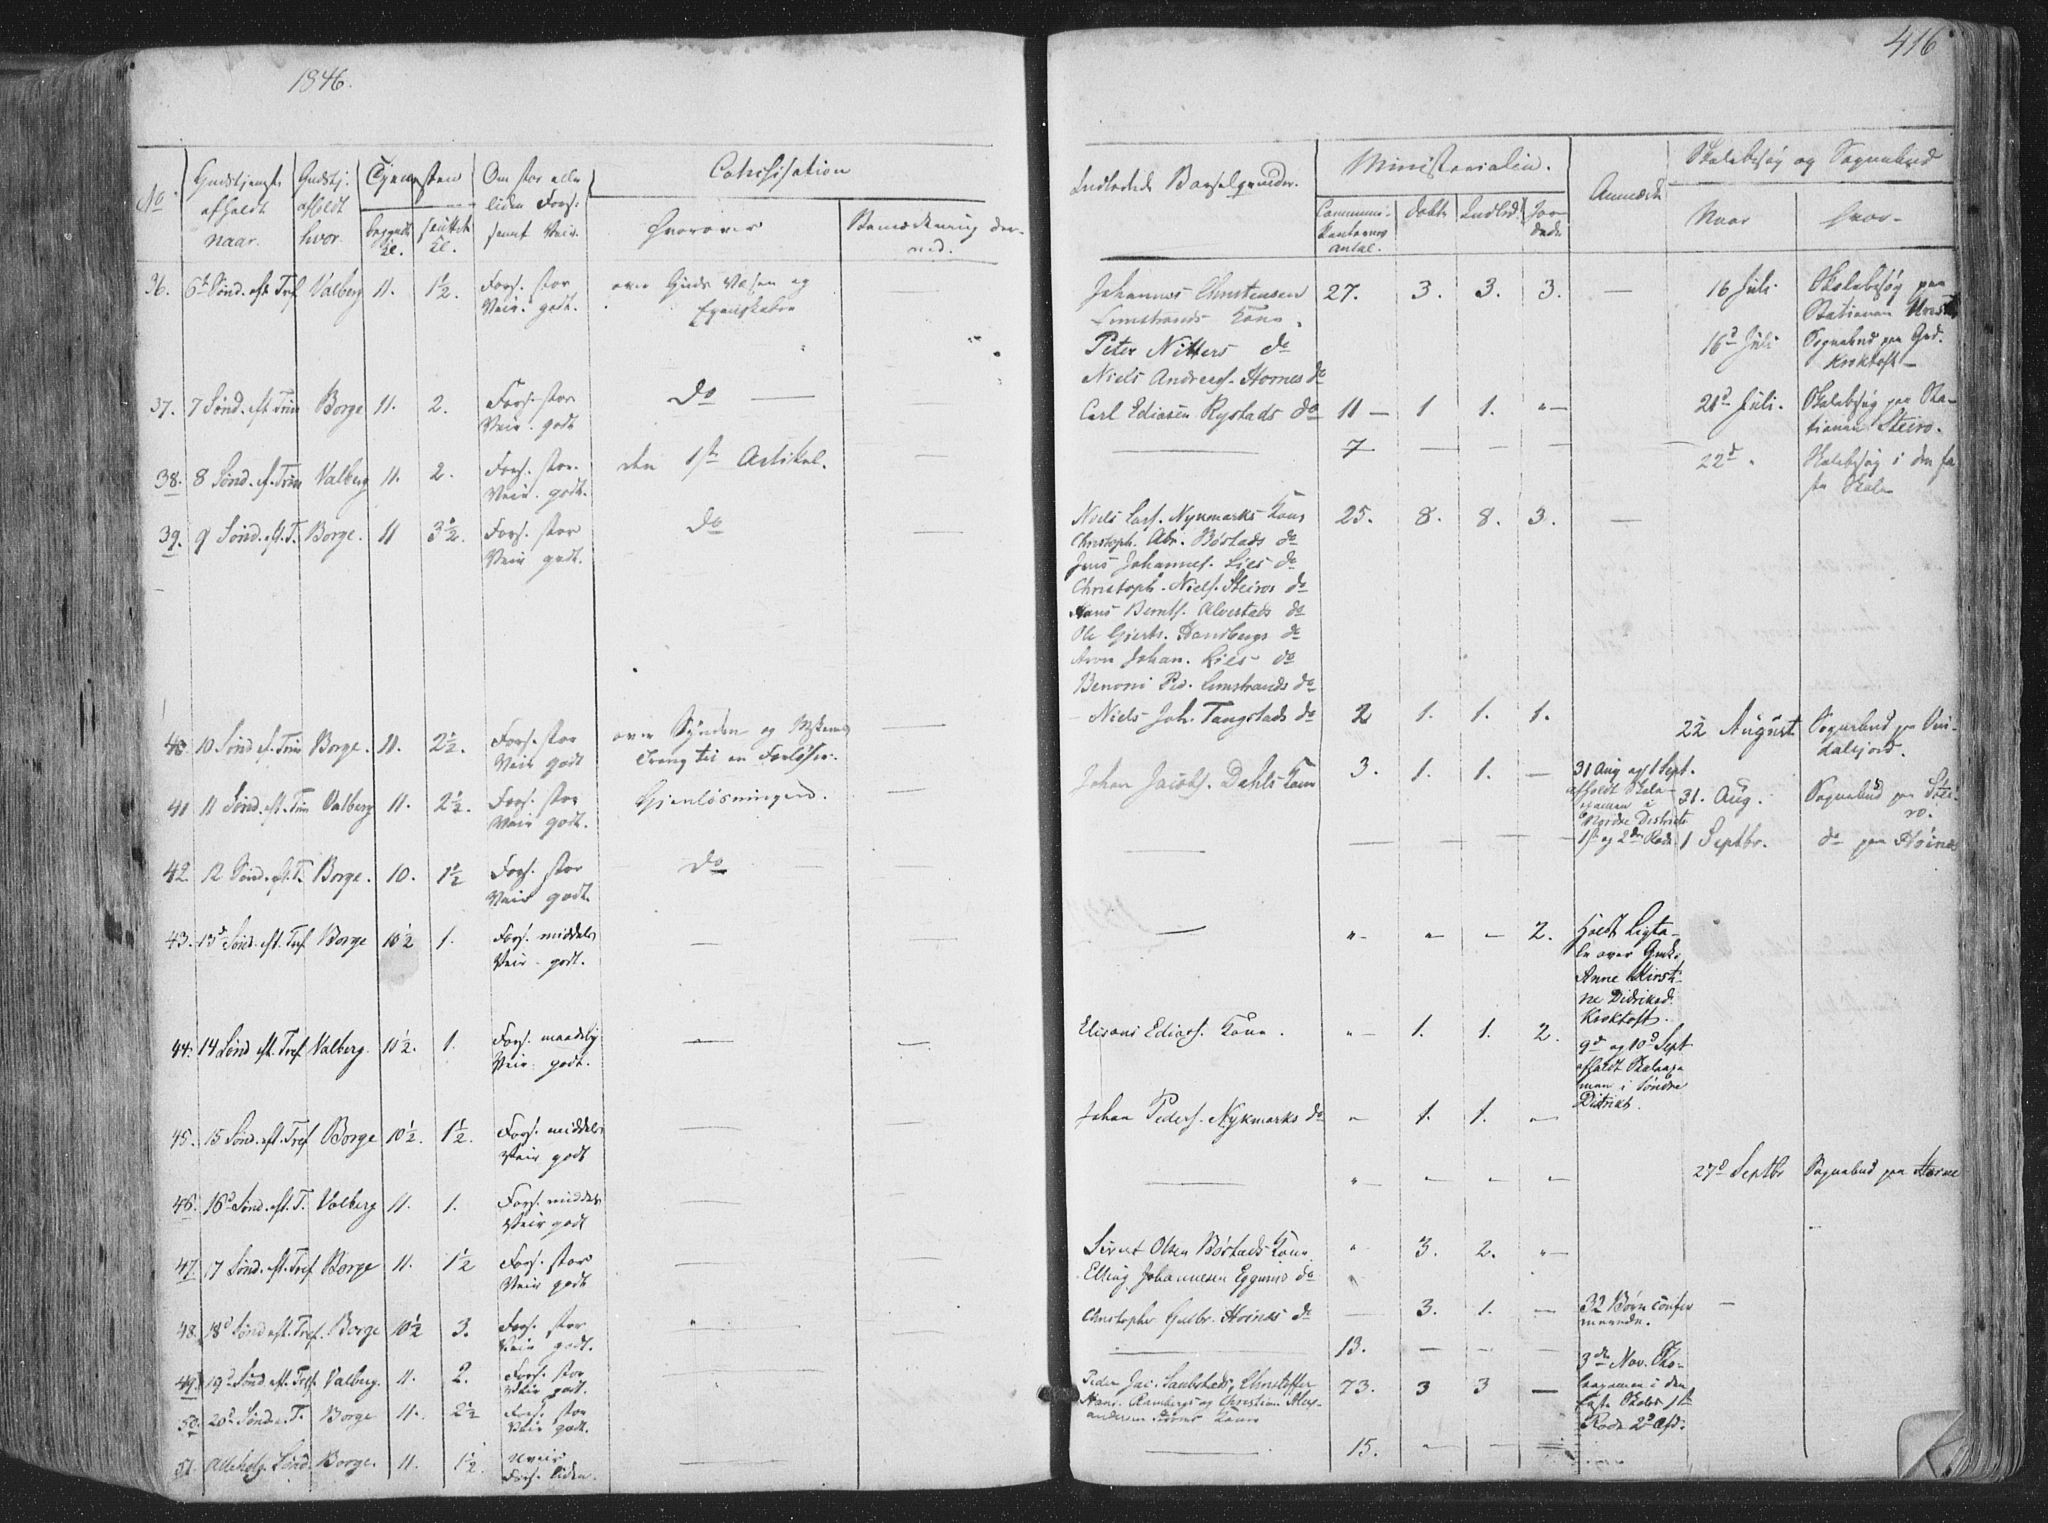 1846.
416
No
Gudstjeneste afholdt naar.
Gudstj. afholdt hvor.
Tjenesten
begyndte Kl.
sluttet Kl.
Om stor eller liden Fors. samt Veir.
Catechisation
hvorover
Bemærkning derved.
Indledede Barselqvinder.
Ministerialia.
Communikanternes Antal.
Døbte
Indled.
Jordede
Anmærk
Skolebesøg og Sognebud
Naar
hvor
36. 6t Sønd. eft. Tref Valberg 11. 1½. Fors. stor Veir. godt. over Guds Væsen og Egenskaber
Johannes Christensen Limstrands Kone. 27. 3. 3. 3. — 16 Juli Skolebesøg paa Stationen
Peter Nitters do 16d Juli Sognebud paa Kroktoft —
Niels Andreas. Hornes do
37. 7 Sønd. eft. Trin Borge 11. 2. Fors. stor Veir. godt do — —
Carl Ediasen Rystads do 11 — 1 1. „— 21d Juli. Skolebesøg paa Stationen Steiro.
38. 8 Sønd. ef. Trin Valberg 11. 2. Fors. stor. Veir. godt. den 1ste Artikel. —
— 7 — — — 22d „ Skolebesøg i den faste Skole
39. 9 Sønd. eft. T. Borge. 11 3½. Fors. stor Veir godt. do —
Niels Lars. Nykmarks Kone 25. 8. 8. 3. —
Christoph. Abr. Bøstads do
Jens Johannes. Lies do
Christoph. Niels. Steiros do
Hans Bernts. Alvestads do
Ole Gierts. Handbergs do
Aron Johan. Lies do
Benoni Ped. Limstrands do
40. 10 Sønd ef. Trin Borge. 11. 2½. Fors. stor Veir godt over Synden og Mskenes Trang til en Forløser. —
Niels Joh. Tangstads do 2 1. 1. 1. 22 August Sognebud paa
41 11 Sønd. eft. Trin Valberg 11. 2½. Fors. stor Veir godt. Gjenløsningen. —
Johan Jacobs. Dahls Kone 3. 1. 1. — 31 Aug og 1 Sept. afholdt Skoleexamen i Nordre Districts 1st og 2den Rode 31. Aug. Sognebud paa Steiro.
42 12 Sønd. eft. T. Borge. 10. 1½ Fors. stor Veir godt. do —
— — — — — 1 Septbr. do paa Høinæs
43. 13d Sønd. eft. Tref Borge 10½ 1. Fors. middels Veir. godt. — —
— „ „ „ 2. Holdt Ligtale over Anne Kirstine Didriksd. Kroktoft.
44. 14 Sønd eft. Tref Valberg. 10½. 1. Fors. maadelig Veir. godt. — —
Elisæus Edias. Kone. „— 1. 1. 2. 9d og 10d Sept afholdt Skoleexamen i Søndre District.
45. 15 Sønd. eft. Tref Borge 10½. 1½. Fors. middels Veir godt — —
Johan Peders. Nykmarks do „ 1. 1. „
46. 16d Sønd. eft. T. Valberg 11. 1. Fors. middels Veir godt — —
— „ „ „ „ 27d Septbr Sognebud paa Horne
47. 17 Sønd. eft. Tref Borge 11. 1½ Fors. stor Veir godt — —
Sivert Olsen Bøstads Kone „ 3. 2. „
Elling Johannesen Eggums do „
48. 18d Sønd eft. Tref. Borge 10½ 3. Fors. stor Veir godt. „ —
Christopher Gulbr. Hoinæs do — 3. 1. — 32 Børn confermerede. —
49. 19d Sønd eft. Tref Valberg. 11. 2. Fors. stor Veir godt. — —
— 13. — — — 3die Nov. Skoleexamen i den faste Skoles 1ste Rode 2d Afd.
50. 20d Sønd. e. T. Borge 11. 2½ Fors. stor Veir godt. — —
Peder Jac. Saubstad, Christoffer Hans. Rambergs og Christian Alexandersen Kone 73. 3 3 —
51. Allehelg. Sønd. Borge. 11. 1½. Uveir Fors. liden. —
— 15. — — —